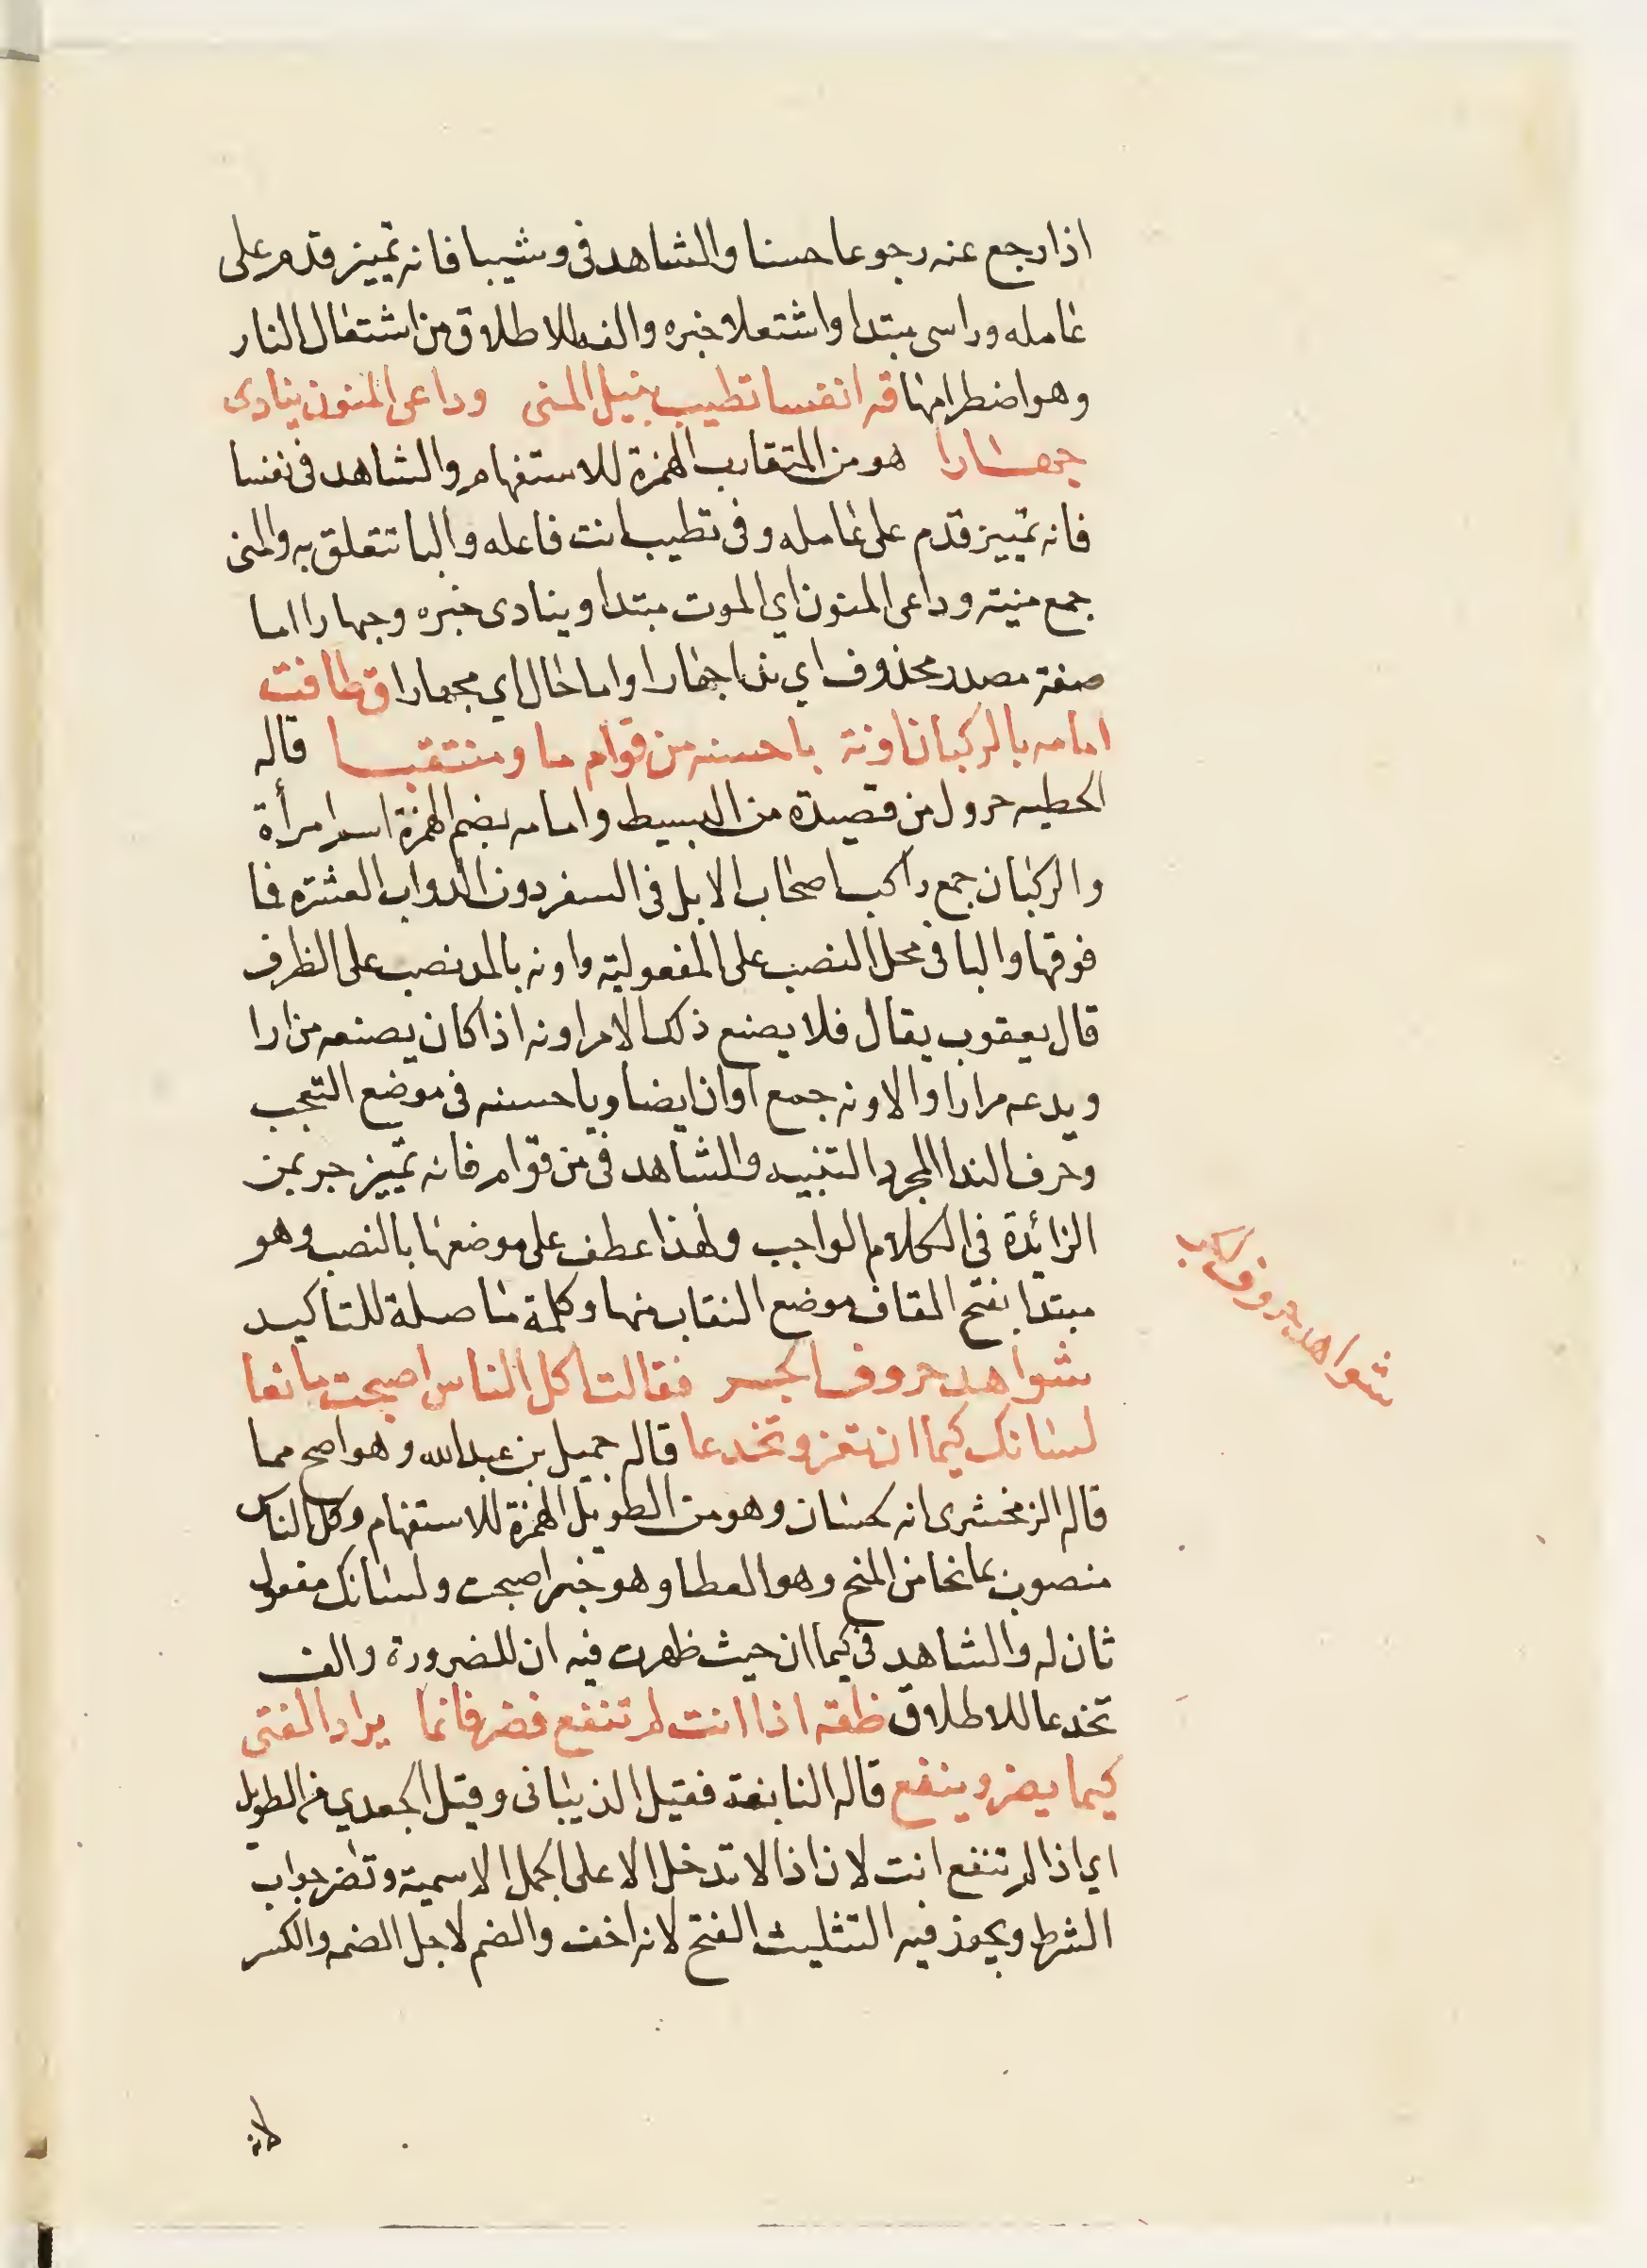 اذا رجع عنه رجوعا حسنا والشاهد فى وشيبا فانه تمييز قدم على
عامله وراسى مبتدا واشتعلا خبره والفه للاطلاق من اشتعال النار
وهو اضطرامها قه انفسا تطيب بنيل المنى وداعى المنون ينادى
جهارا هو من المتقارب الهمزة للاستفهام والشاهد فى نفسا
فانه تمييز قدم على عامله وفى تطيب انت فاعله والبا تتعلق به والمنى
جمع منية وداعى المنون اي الموت مبتدا وينادى خبره وجهارا اما
صفة مصدر محذوف اي ندا جهارا واما حال اي مجهارا ق طافت
امامه بالركبان اونة ياحسنه من قوام ما ومنتقبا قاله
الحطيه جرول من قصيدة من البسيط وامامه بضم الهمزة اسم امرأة
والركبان جمع راكب اصحاب الابل فى السفر دون الدواب العشرة فما
فوقها والبا فى محل النصب على المفعولية واونه بالمد نصب على الظرف
قال يعقوب يقال فلا يصنع ذلك الامر اونه اذا كان يصنعه مرارا
ويدعه مرارا والاونه جمع آوان ايضا وياحسنه فى موضع التعجب
وحرف الندا لمجرد التنبيه والشاهد فى من قوام فانه تمييز جر بمن
الزائدة فى الكلام الواجب ولهذا عطف على موضعها بالنصب وهو
مبتدا بفتح القاف موضع النقاب منها وكلمة ما صلة للتاكيد
شواهد حروف الجر فقالت اكل الناس اصبحت مانحا
لسانك كيما ان تغر وتخدعا قاله جميل بن عبدالله وهو اصح مما
قاله الزمخشرى انه لحسان وهو من الطويل الهمزة للاستفهام وكل الناس
منصوب بمانحا من المنح وهو العطا وهو خبر اصبحت ولسانك مفعول
ثان له والشاهد فى كيما ان حيث ظهرت فيه ان للضرورة والف
تخدعا للاطلاق ظقه اذا انت لم تنفع فضر فانما يراد الفتى
كيما يضر وينفع قاله النابغة فقيل الذبيانى وقيل الجعدي من الطويل
اي اذا لم تنفع انت لان اذا لا تدخل الا على الجمل الاسمية وتضر جواب
الشرط ويجوز فيه التثليث الفتح لانه اخف والضم لاجل الضمه والكسر
لانه
شواهد حروف